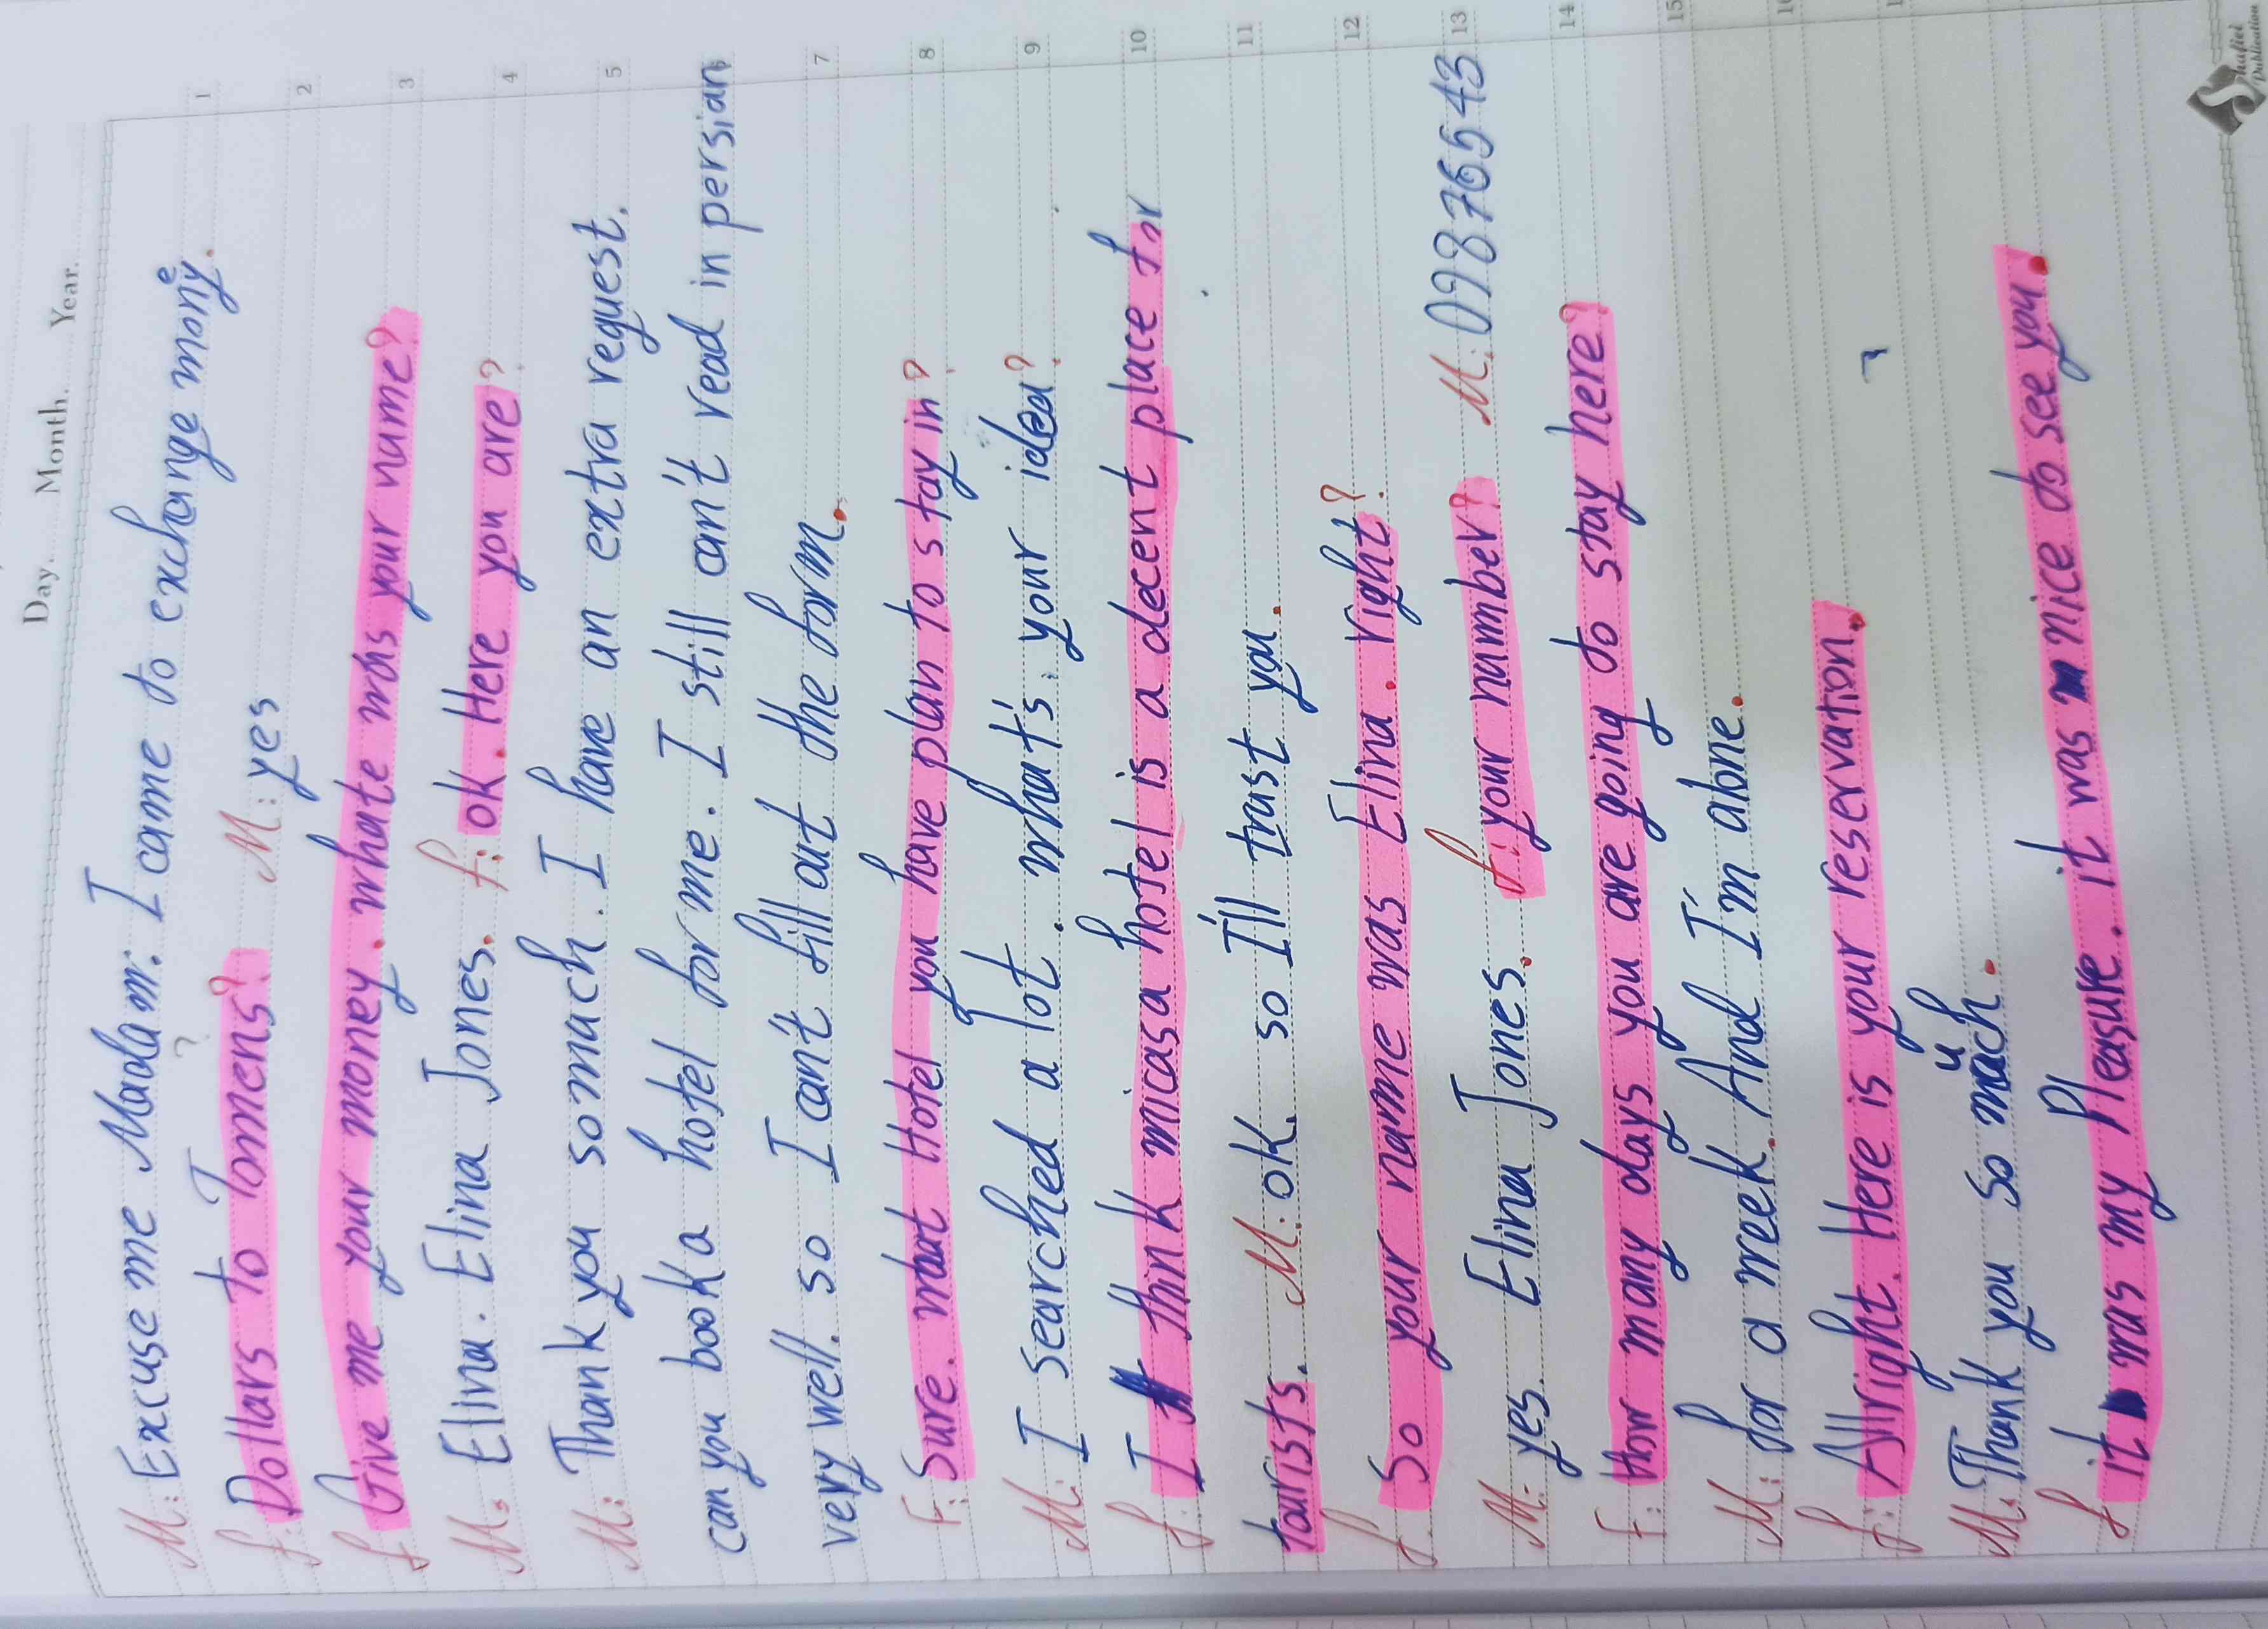 Day. Month. Year.
M: Excuse me Madam. I came to exchange mony. 1
e
f: Dollars to Tomens? M: yes 2
f: Give me your money. whate was your name? 3
M: Elina. Elina Jones. f: ok. Here you are? 4
M: Thank you somach. I have an extra request. 5
can you book a hotel for me. I still can't read in persian
very well. so I can't fill out the form. 7
F: Sure. what Hotel you have plan to stay in? 8
M: I searched a lot. what's your idea? 9
f: I think micasa hotel is a decent place for 10
tourists. M: ok. so I'll trast you. 11
f: So your name was Elina. right? 12
M: yes. Elina Jones. f: your number? M: 09876543 13
F: How many days you are going to stay here? 14
M: for a week. And I'm alone. 15
f: Allright. Here is your reservation.
u
M: Thank you so mach.
f it was my Pleasure. it was nice to see you.
Shafiei
Publication